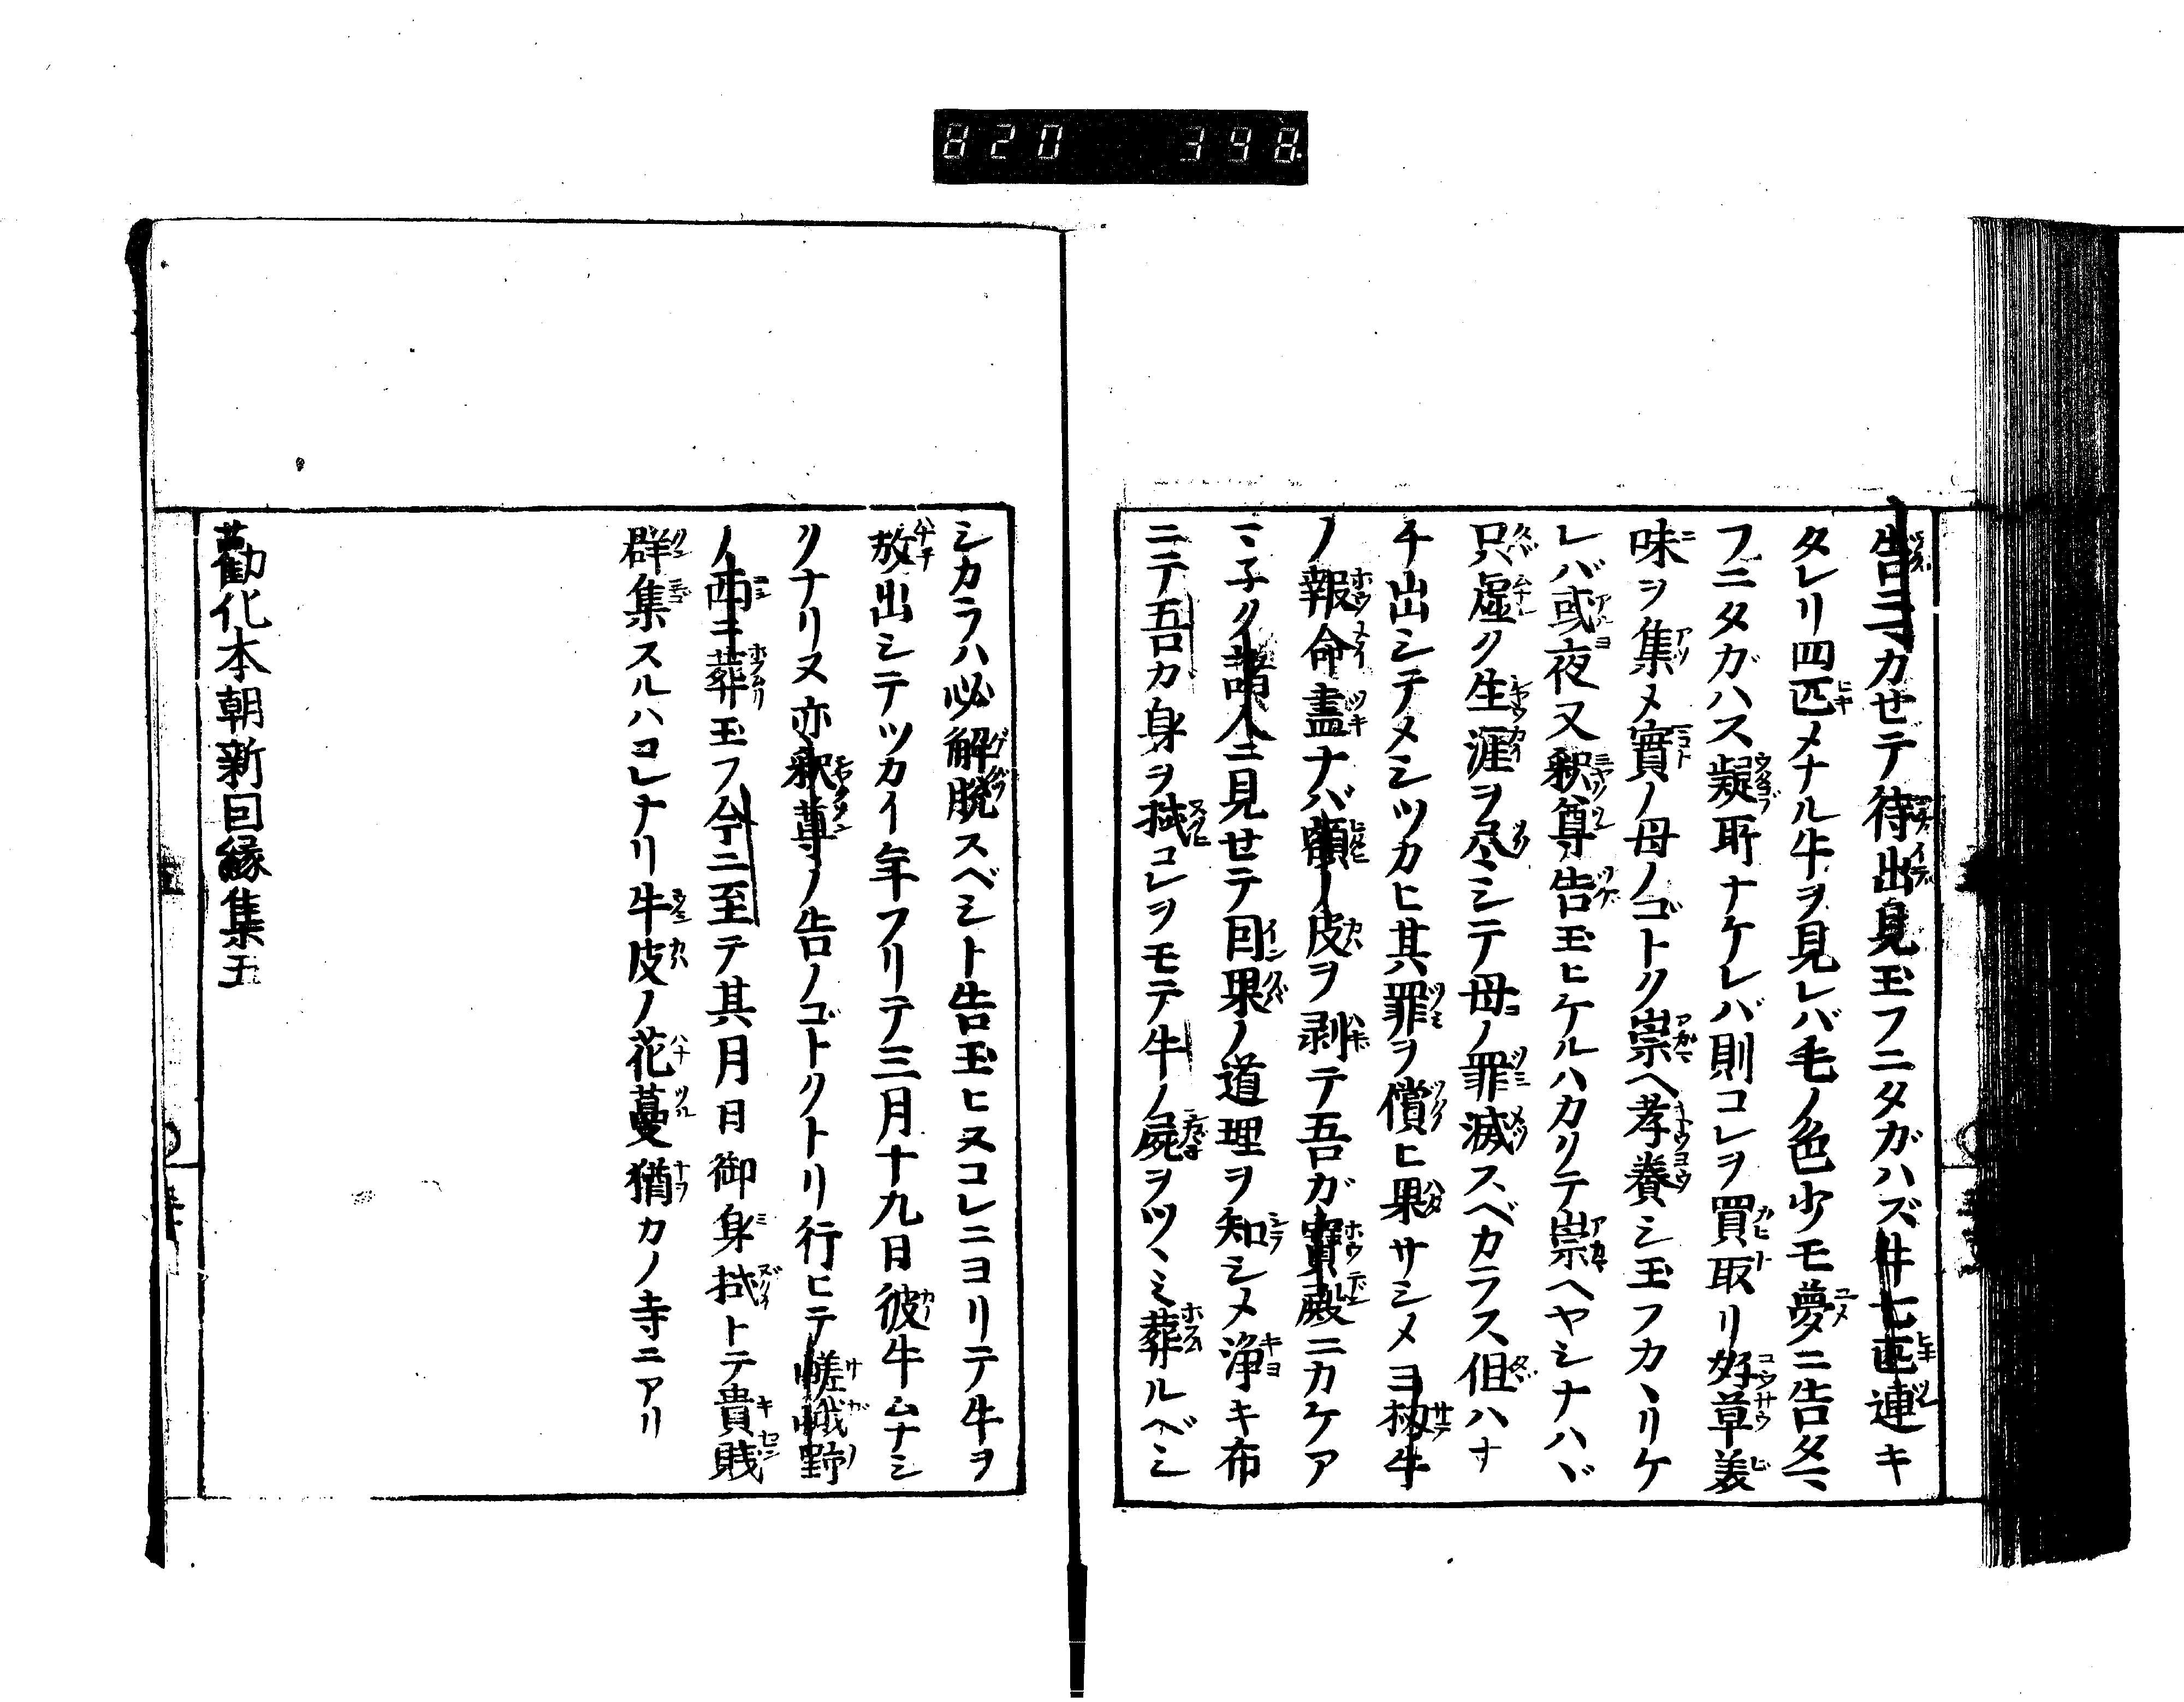 820 398
告ニマカせテ待出見玉フニタガハズ牛七匹連キ
タレリ四匹メナル牛ヲ見レバ毛ノ色少モ夢ニ告タマ
フニタガハス疑所ナケレバ則コレヲ買取リ好草美
味ヲ集メ實ノ母ノゴトク崇ヘ孝養シ玉フカヽリケ
レバ或夜又釈尊告玉ヒケルハカリテ崇ヘヤシナハヾ
只虚ク生涯ヲ尽シテ母ノ罪滅スベカラス但ハナ
チ出シテメシツカヒ其罪ヲ償ヒ果サシメヨ扨牛
ノ報命盡ナバ額ノ皮ヲ剥テ吾ガ寳殿ニカケア
マ子ク諸人ニ見せテ因果ノ道理ヲ知シメ浄キ布
ニテ吾カ身ヲ拭コレヲモテ牛ノ屍ヲツヽミ葬ルベシ
シカラハ必解脱スベシト告玉ヒヌコレニヨリテ牛ヲ
放出シテツカイ年フリテ三月十九日彼牛ムナシ
クナリヌ亦釈尊ノ告ノゴトクトリ行ヒテ嵯峨野
ノ西ニ葬玉フ今ニ至テ其月日御身拭トテ貴賎
群集スルハコレナリ牛皮ノ花蔓猶カノ寺ニアリ
勸化本朝新因縁集五